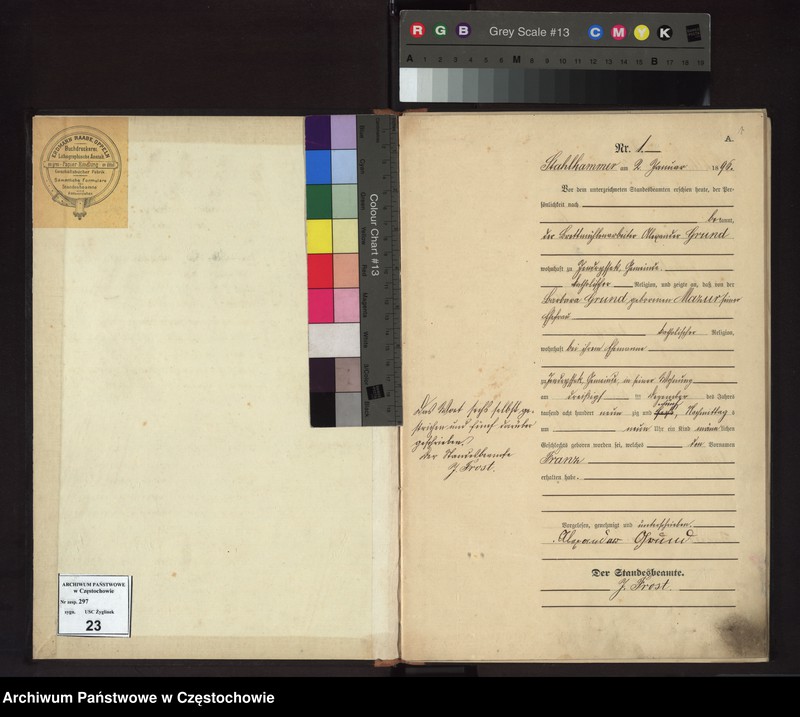 R G B Grey Scale #13 C M Y K
A 1 2 3 4 5 6 M 8 9 10 11 12 13 14 15 B 17 18 19
ERDMANN RAABE, OPPELN
Buchdruckerei
Lithographische Anstalt
Papier Handlung
Geschäftsbücher Fabrik
Sämmtliche Formulare
für
Standesbeamte
Colour Chart #13
Blue
Cyan
Green
Yellow
Red
Magenta
White
3/Color
Black
ARCHIWUM PAŃSTWOWE
w Częstochowie
Nr zesp. 297
sygn. USC Żyglinek
23
A.
Nr. 1
Stahlhammer am 2. Januar 1896.
Vor dem unterzeichneten Standesbeamten erschien heute, der Per-
sönlichkeit nach
bekannt,
der Brettmühlenarbeiter Alexander Grund
wohnhaft zu Jendryssek, Gemeinde
katholischer Religion, und zeigte an, daß von der
Barbara Grund geborenen Mazur, seiner
Ehefrau
katholischer Religion,
wohnhaft bei ihrem Ehemanne
zu Jendryssek, Gemeinde in seiner Wohnung
am dreißigsten Dezember des Jahres
fünf
tausend acht hundert neunzig und sechs, Nachmittags
um neun Uhr ein Kind männlichen
Geschlechts geboren worden sei, welches den Vornamen
Franz
erhalten habe.
Das Wort sechs selbst ge-
strichen und fünf darüber
geschrieben.
Der Standesbeamte
J. Frost.
Vorgelesen, genehmigt und unterschrieben.
Alexander Grund
Der Standesbeamte.
J. Frost.
Archiwum Państwowe w Częstochowie